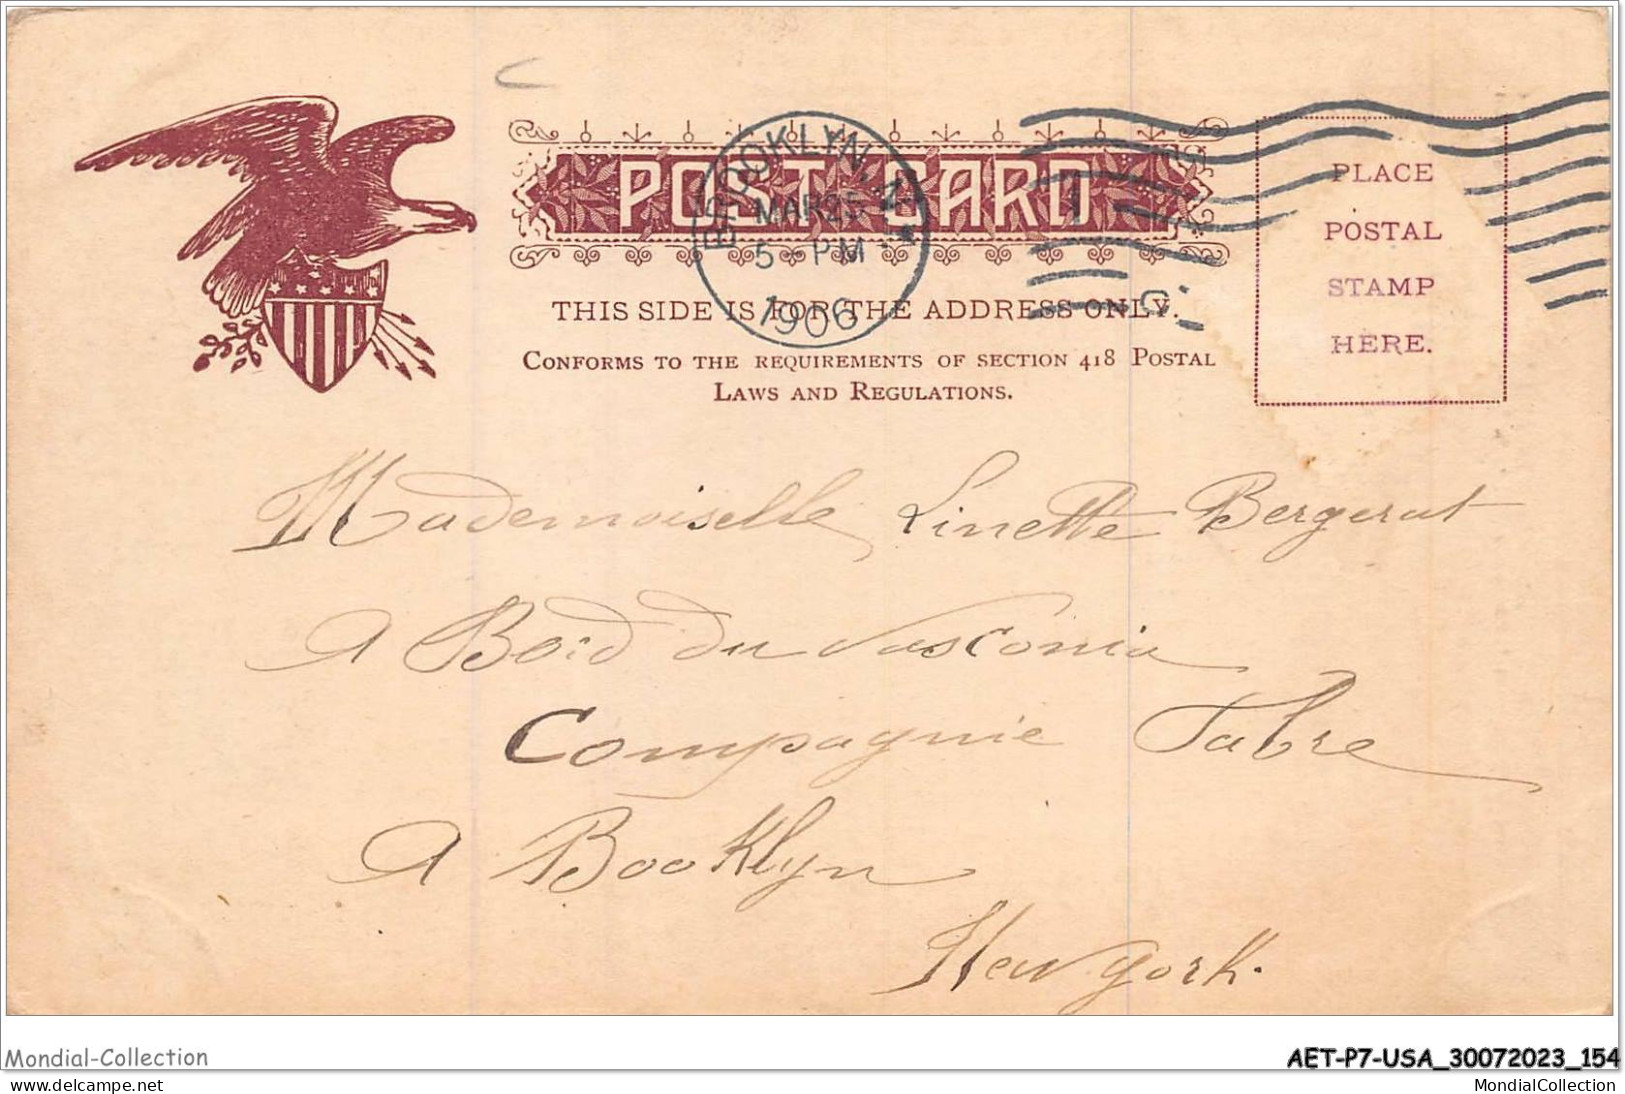 POST CARD
BROOKLYN, N.
MAR 25
5 - PM
1906
THIS SIDE IS FOR THE ADDRESS ONLY.
CONFORMS TO THE REQUIREMENTS OF SECTION 418 POSTAL
LAWS AND REGULATIONS.
PLACE
POSTAL
STAMP
HERE.
Mademoiselle Linette Bergerat
A Bord du Vasconia
Compagnie Fabre
A Booklyn
New york.
Mondial-Collection
AET-P7-USA_30072023_154
©MondialCollection / akpool.de
MondialCollection